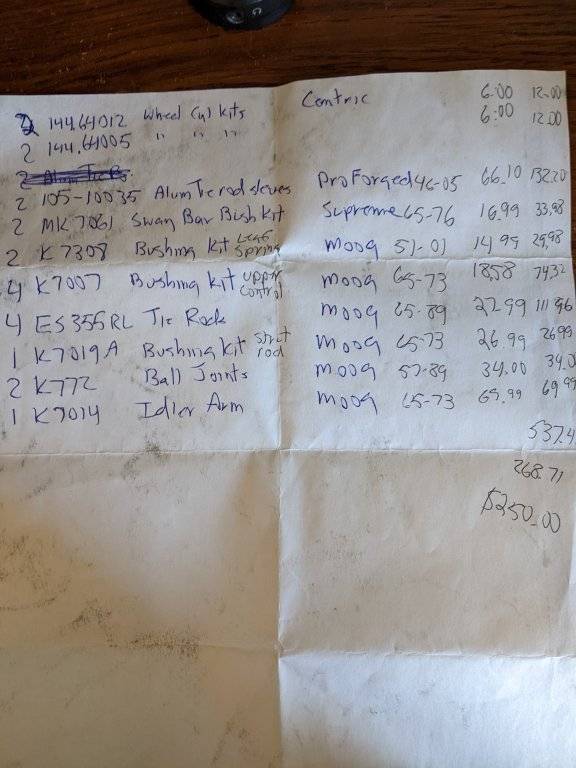 2 144.64012 Wheel Cyl kits Centric 6.00 12.00
2 144.64005 " " " 6.00 12.00
2 105-10035 Alum Tie rod sleeves ProForged 46-05 66.10 132.20
2 MK7061 Sway Bar Bush kit Supreme 65-76 16.99 33.98
2 K7308 Bushing kit Leaf Spring moog 51-01 14.99 29.98
4 K7007 Bushing kit upper control moog 65-73 18.58 74.32
4 ES355RL Tie Rods moog 65-89 27.99 111.96
1 K7019A Bushing kit strut rod moog 65-73 26.99 26.99
2 K772 Ball Joints moog 57-89 34.00 34.0
1 K7014 Idler Arm moog 65-73 69.99 69.99
537.4
268.71
$250.00